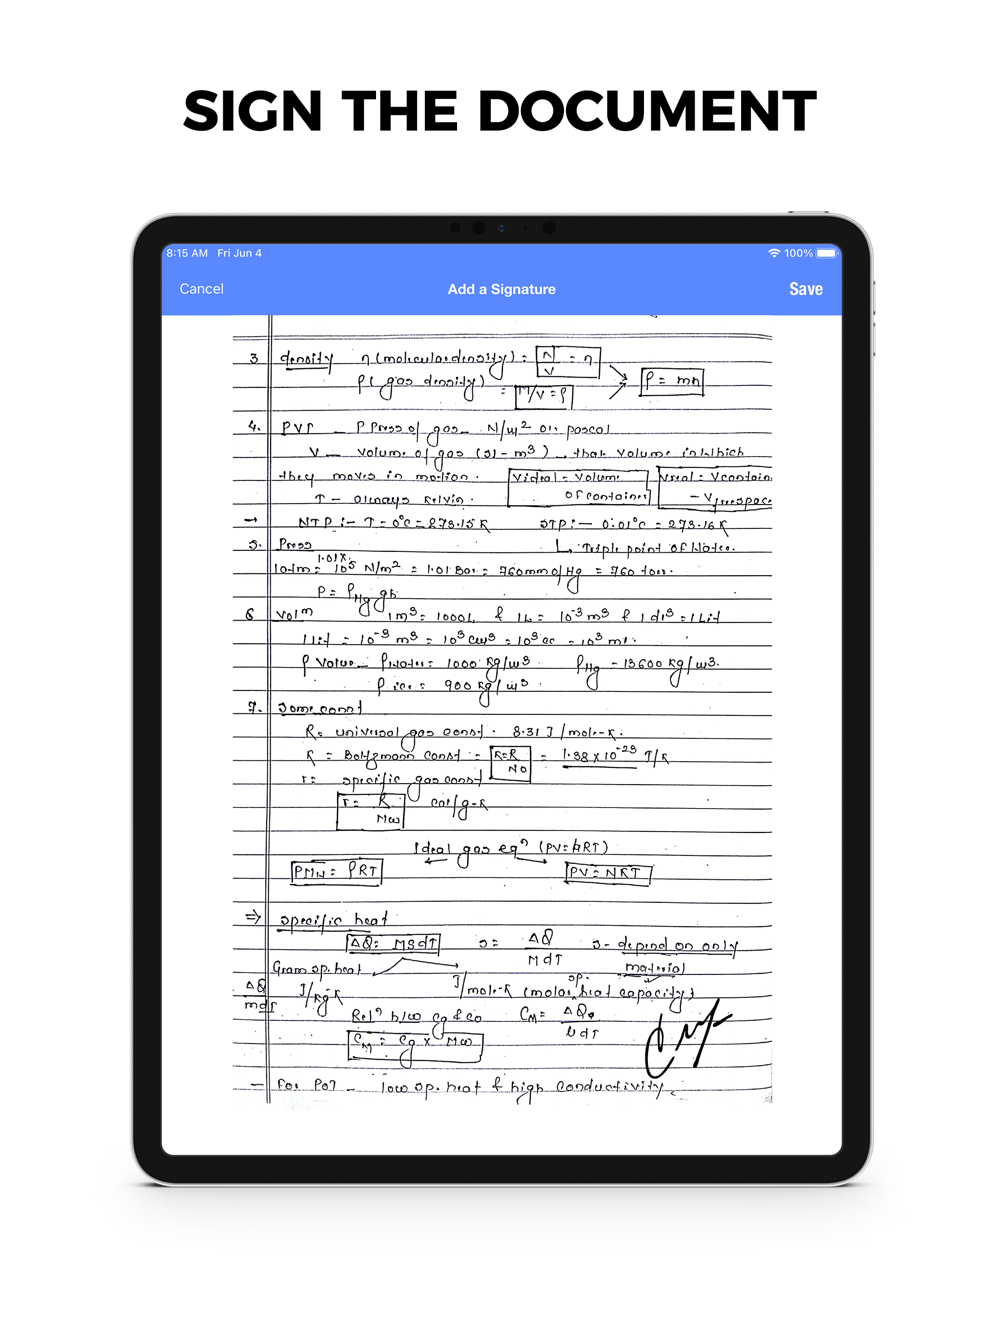 SIGN THE DOCUMENT
8:15 AM Fri Jun 4 100%
Cancel Add a Signature Save
3 density n (molecular density) = N/V = n
ρ (gas density) = M/V = ρ ρ = mn
4. PVT – P Press of gas – N/m² or pascal
V – volume of gas (SI – m³) – that volume in which
they moves in motion. Videal = Volume of container Vreal = Vcontain – Vfreespace
T – always kelvin.
→ NTP :- T = 0°C = 273.15 K STP :- 0.01°C = 273.16 K
5. Press ↳ Triple point of Water.
1 atm = 1.01 x 10⁵ N/m² = 1.01 Bar = 760 mm of Hg = 760 torr.
P = ρHg gh
6 Volm 1 m³ = 1000 L & 1 L = 10⁻³ m³ & 1 dm³ = 1 Lit
1 Lit = 10⁻³ m³ = 10³ cm³ = 10³ cc = 10³ ml.
ρ Value – ρwater = 1000 kg/m³ ρHg = 13600 kg/m³.
ρice = 900 kg/m³.
7. Some const
R = universal gas const. 8.31 J/mole-K.
K = Boltzmann const = K = R/N0 = 1.38 x 10⁻²³ J/K
r = specific gas const
r = R/Mw cal/g-K
Ideal gas eqⁿ (PV = nRT)
PMw = ρRT PV = NKT
⇒ specific heat
ΔQ = MSdT S = ΔQ/MdT S – depend on only
Gram sp. heat material
ΔQ/mdT J/kg K J/mole-K (molar sp. heat capacity)
Relⁿ b/w Cg & CM = ΔQ/μdT
CM = Cg x Mw
– For Pot – low sp. heat & high conductivity.